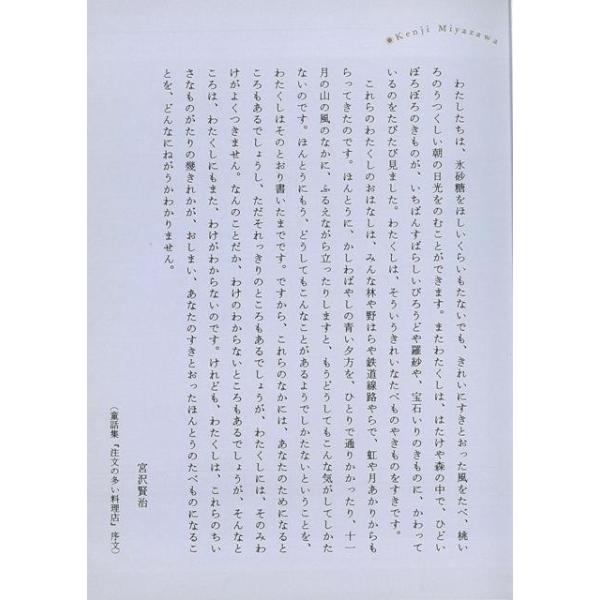 Kenji Miyazawa
わたしたちは、氷砂糖をほしいくらいもたないでも、きれいにすきとおった風をたべ、桃い
ろのうつくしい朝の日光をのむことができます。またわたくしは、はたけや森の中で、ひどい
ぼろぼろのきものが、いちばんすばらしいびろうどや羅紗や、宝石いりのきものに、かわって
いるのをたびたび見ました。わたくしは、そういうきれいなたべものやきものをすきです。
これらのわたくしのおはなしは、みんな林や野はらや鉄道線路やらで、虹や月あかりからも
らってきたのです。ほんとうに、かしわばやしの青い夕方を、ひとりで通りかかったり、十一
月の山の風のなかに、ふるえながら立ったりしますと、もうどうしてもこんな気がしてしかた
ないのです。ほんとうにもう、どうしてもこんなことがあるようでしかたないということを、
わたくしはそのとおり書いたまでです。ですから、これらのなかには、あなたのためになると
ころもあるでしょうし、ただそれっきりのところもあるでしょうが、わたくしには、そのみわ
けがよくつきません。なんのことだか、わけのわからないところもあるでしょうが、そんなと
ころは、わたくしにもまた、わけがわからないのです。けれども、わたくしは、これらのちい
さなものがたりの幾きれかが、おしまい、あなたのすきとおったほんとうのたべものになるこ
とを、どんなにねがうかわかりません。
宮沢賢治
(童話集『注文の多い料理店』序文)